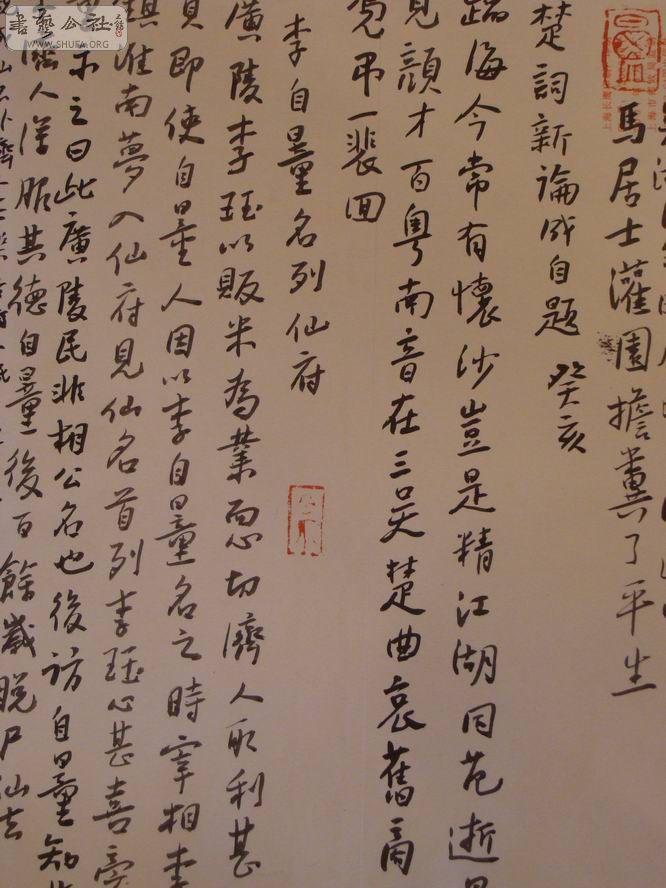 書藝公社
WWW.SHUFA.ORG
馬居士灌園擔糞了平生
楚詞新論成自題 癸亥
蹈海今常有懷沙豈是精江湖同范逝
見顏才百粵南音在三吳楚曲哀舊商
吊一裴回
李自量名列仙府
廣陵李珏以販米為業而心切濟人取利甚
即使自量人因以李自量名之時宰相李
淮南夢入仙府見仙名首列李珏心甚喜旁
示之曰此廣陵民非相公名也後訪自量知
人深服其德自量後百餘歲脫尸仙去